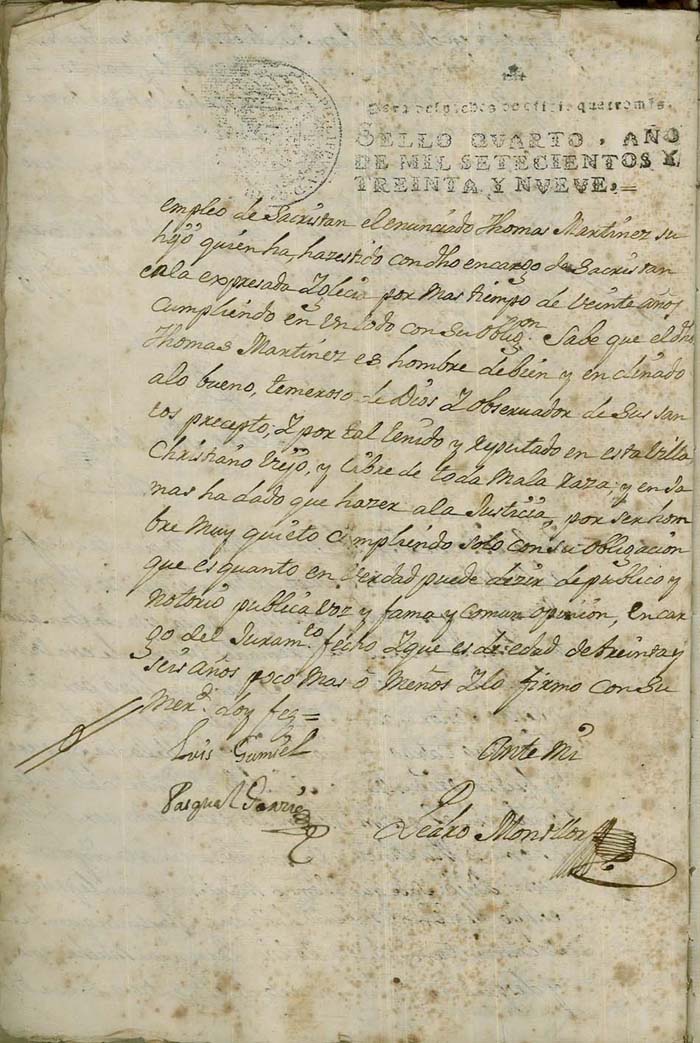 Para despachos de oficio quatro mrs.
SELLO QVARTO, AÑO
DE MIL SETECIENTOS Y
TREINTA Y NVEVE,=
empleo de Sacristan el enunciado Thomas Martinez su
hijo quien ha hazestido con dho encargo de Sacristan
en la expresada Iglecia por mas tiempo de veinte años
Cumpliendo en un todo con su obligon. Sabe que el dho
Thomas Martinez es hombre de bien y en clinado
alo bueno, temeroso de Dios y observador de sus san
tos precepto, y por tal tenido y reputado en esta Villa
Christiano Viejo, y libre de toda mala raza, y en Ja
mas ha dado que hazer ala Justicia, por ser hom
bre muy quieto Cumpliendo solo con su obligacion
que es quanto en verdad puede dezir de publico y
notorio publica voz y fama y comun opinion, en car
go del Juramto fecho y que es de edad de treinta y
seis años poco mas ô menos y lo firmo con su
Merd. doy fee=
Luis Gumiel
Ante mi
Pasqual
Pedro Monllor